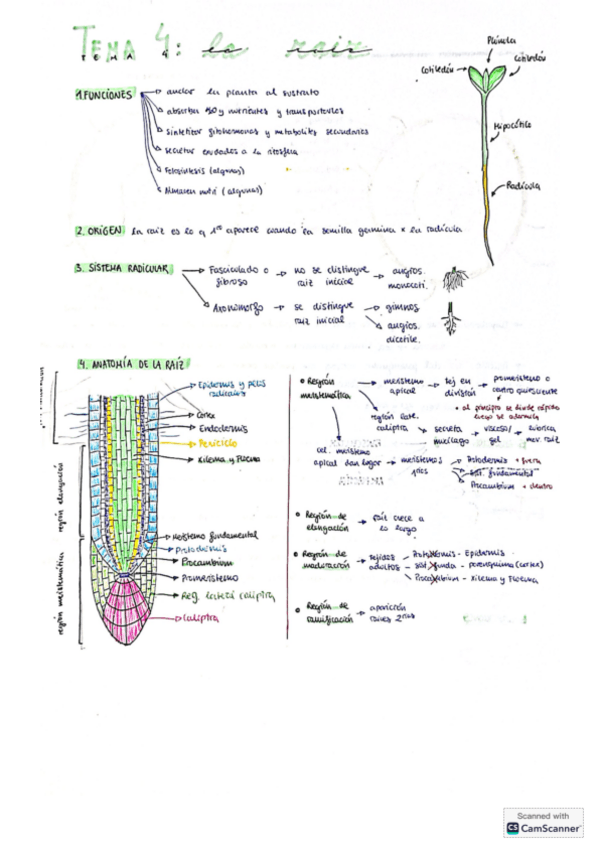 TEMA 4: la raiz
Plúmula
Cotiledón
Cotiledón
Hipocótilo
Radícula
1. FUNCIONES
anclar la planta al sustrato
absorber H2O y nutrientes y transportarlos
sintetizar fitohormonas y metabolitos secundarios
secretar exudados a la rizosfera
Fotosíntesis (algunas)
Almacén nutri (algunas)
2. ORIGEN la raiz es lo q 1º aparece cuando la semilla germina x la radícula
3. SISTEMA RADICULAR
Fasciculado o fibroso → no se distingue raiz inicial → angios. monocoti.
Axonomorfo → se distingue raiz inicial → gimnos
angios. dicotile.
4. ANATOMÍA DE LA RAÍZ
Epidermis y pelos radicales
Cortex
Endodermis
Periciclo
Xilema y Floema
región elongación
Meristemo fundamental
Protodermis
Procambium
Promeristemo
Reg. lateral caliptra
Caliptra
región meristemática
• Región meristemática → meristemo apical → tej en división → promeristemo o centro quiescente
• al principio se divide rápido luego se adormila
región late. caliptra → secreta mucílago → viscoso/ gel → lubrica mov. raiz
cel. meristemo apical dan lugar → meristemos 1rios → Protodermis → fuera
Mat. fundamental
Procambium → dentro
• Región de elongación → raiz crece a lo largo
• Región de maduración → tejidos adultos
Protodermis - Epidermis
funda - parenquima (cortex)
Procambium - Xilema y Floema
• Región de ramificación → aparición raices 2rias
Scanned with
CS CamScanner